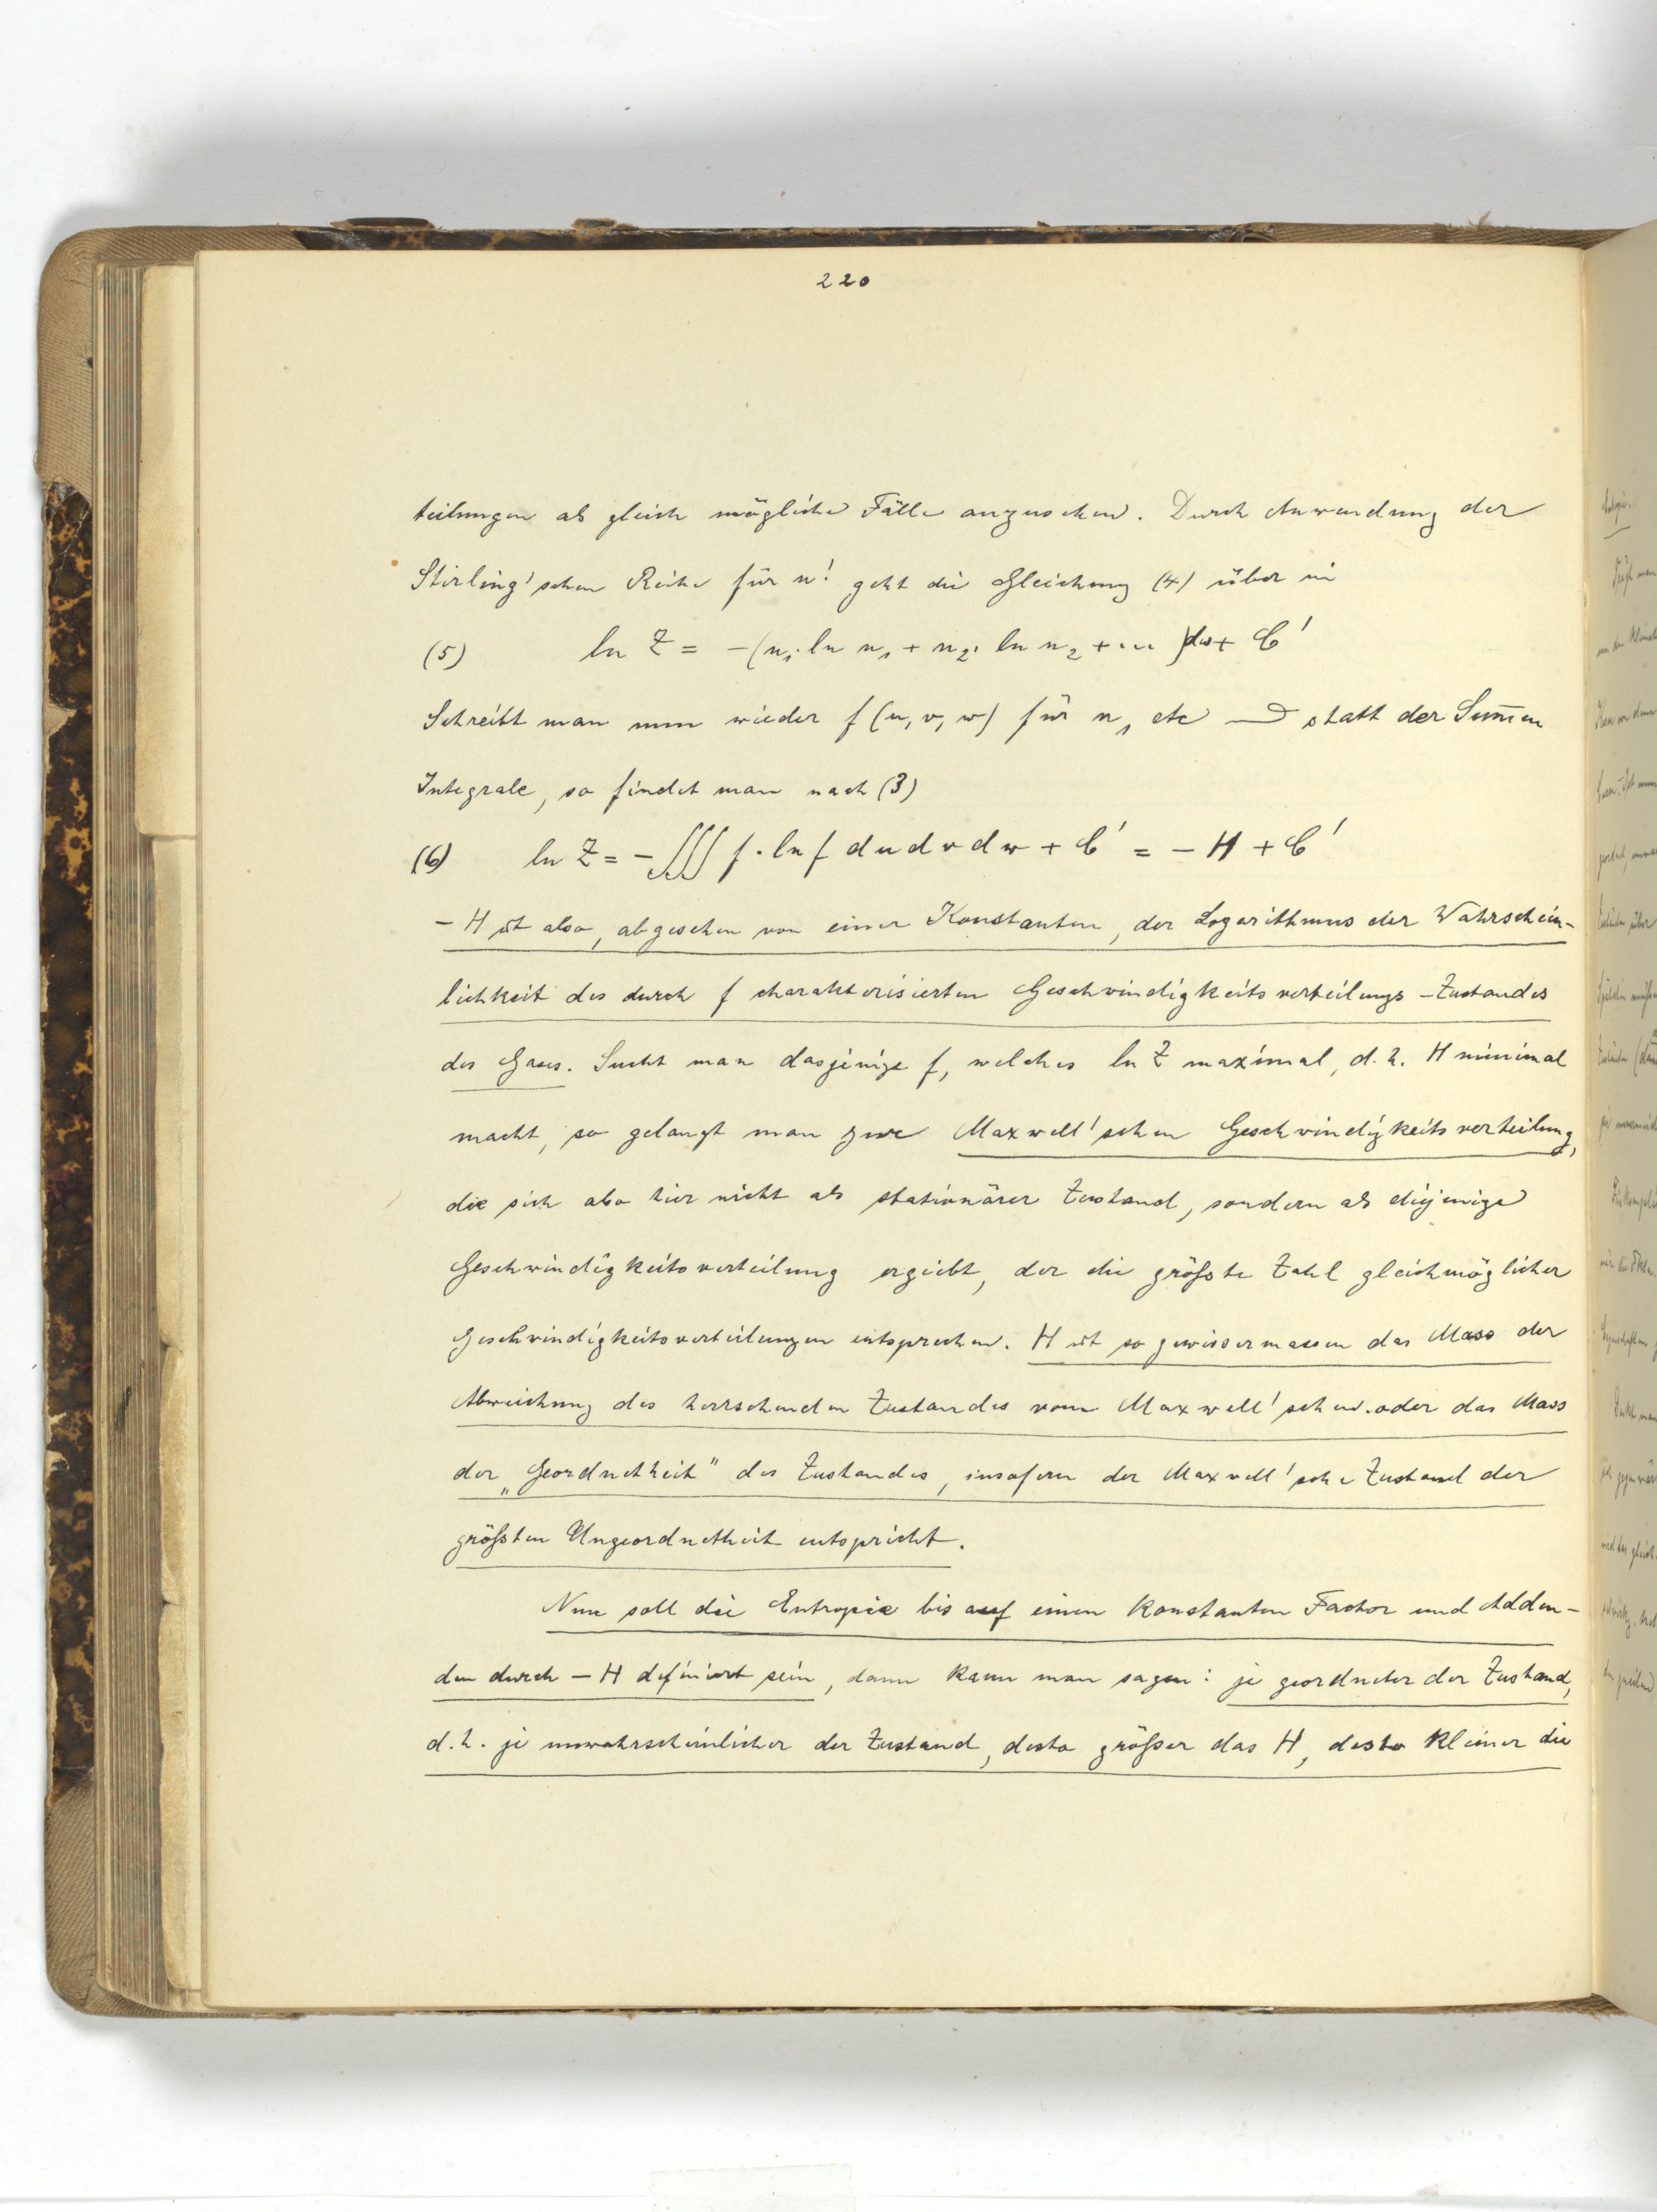 220
teilungen als gleich mögliche Fälle anzusehen. Durch Anwendung der
Stirling'schen Reihe für n! geht die Gleichung (4) über in
(5) ln Z = -(n₁. ln n₁ + n₂. ln n₂ + ... )dω + C'
Schreibt man nun wieder f (u, v, w) für n₁ etc statt der Sum̅en
Integrale, so findet man nach (3)
(6) ln Z = - ∭ f . ln f du dv dw + C' = - H + C'
- H ist also, abgesehen von einer Konstanten, der Logarithmus der Wahrschein-
lichkeit des durch f charakterisierten Geschwindigkeitsverteilungs-Zustandes
des Gases. Sucht man dasjenige f, welches ln Z maximal, d.h. H minimal
macht, so gelangt man zur Maxwell'schen Geschwindigkeitsverteilung,
die sich also hier nicht als stationärer Zustand, sondern als diejenige
Geschwindigkeitsverteilung ergiebt, der die größte Zahl gleichmöglicher
Geschwindigkeitsverteilungen entsprechen. H ist so gewissermassen das Mass der
Abweichung des herrschenden Zustandes vom Maxwell'schen oder das Mass
der „Geordnetheit" des Zustandes, insofern der Maxwell'sche Zustand der
größten Ungeordnetheit entspricht.
Nun soll die Entropie bis auf einen konstanten Factor und Adden-
den durch - H definiert sein, dann kann man sagen: je geordneter der Zustand,
d.h. je unwahrscheinlicher der Zustand, desto größer das H, desto kleiner die